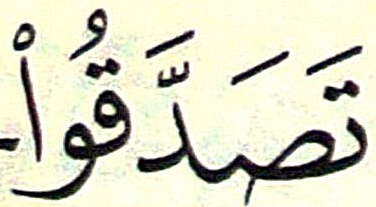 تَصَدَّقُواْ